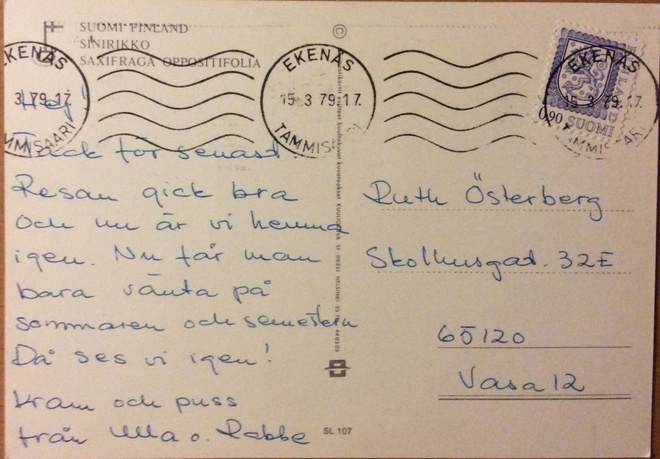 SUOMI FINLAND
SINIRIKKO
SAXIFRAGA OPPOSITIFOLIA
©
EKENÄS
3.79.17.
TAMMISAARI
EKENÄS
15.3.79.17.
TAMMISAARI
EKENÄS
15.3.79.17.
TAMMISAARI
0,90
SUOMI
Hej!
Tack för senast!
Resan gick bra
Och nu är vi hemma
igen. Nu får man
bara vänta på
sommaren och semestern
Då ses vi igen!
Kram och puss
från Ulla o. Rabbe
SL 107
Ruth Österberg
Skolhusgat. 32E
65120
Vasa 12